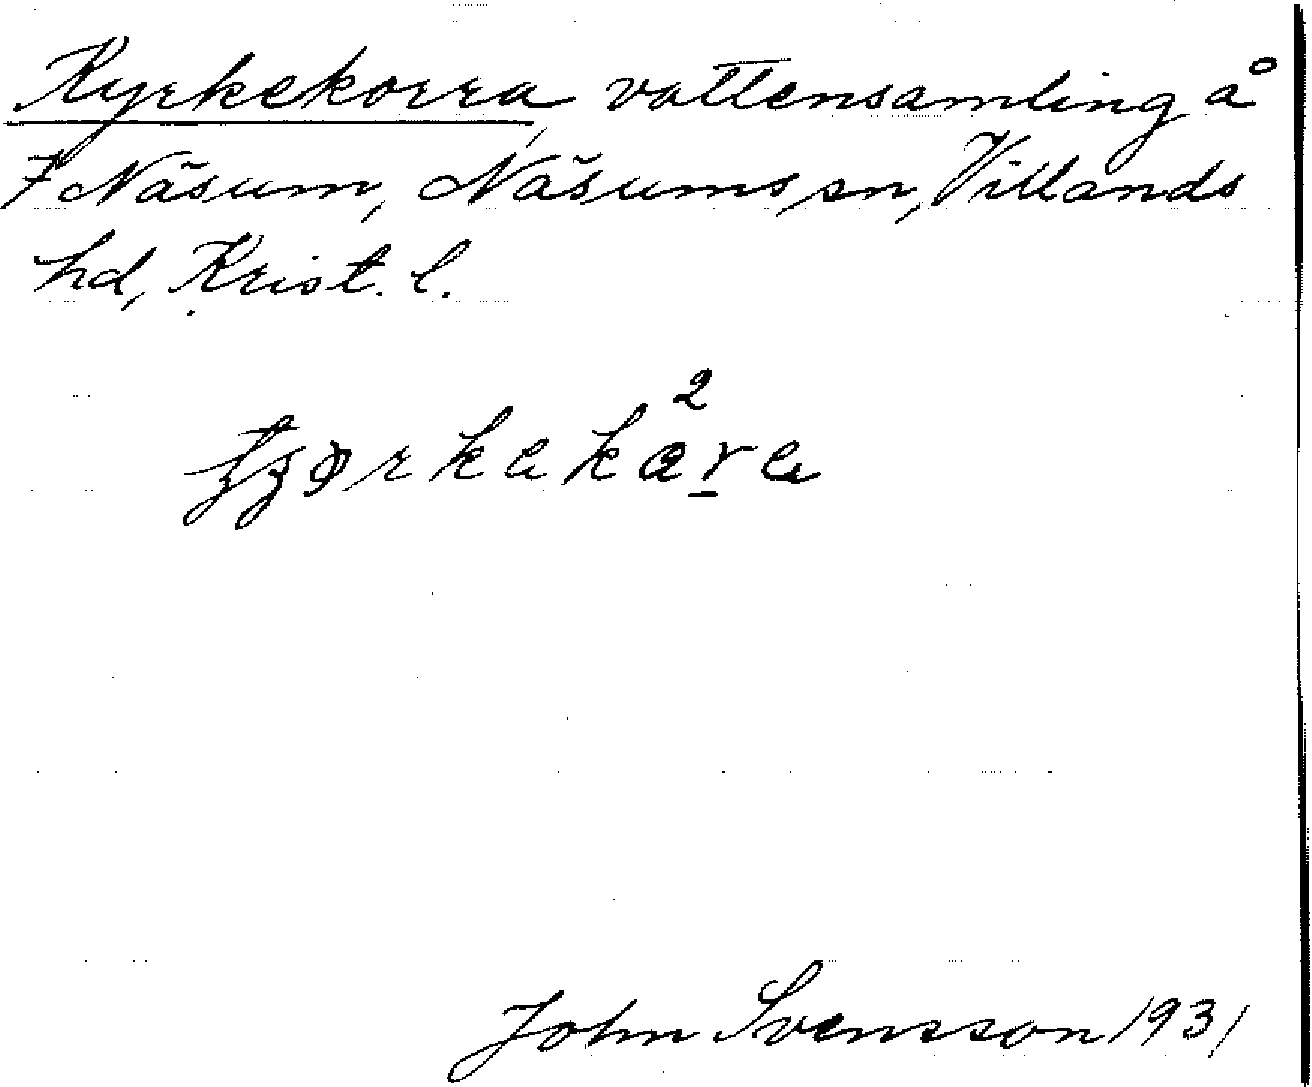 Kyrkekorra, vattensamling å
7 Näsum, Näsums sn, Villands
hd, Krist. l.
John Svensson 1931